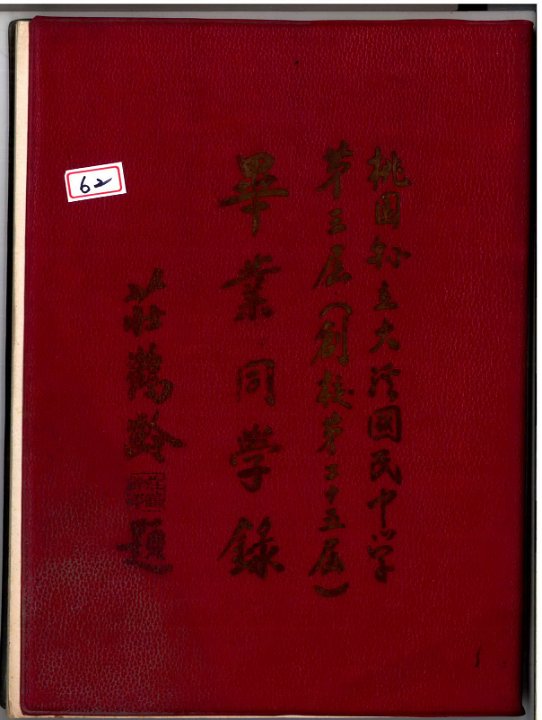 桃園縣立大溪國民中学
第三屆(創校第二十五屆)
畢業同學錄
莊鶴齡題
62